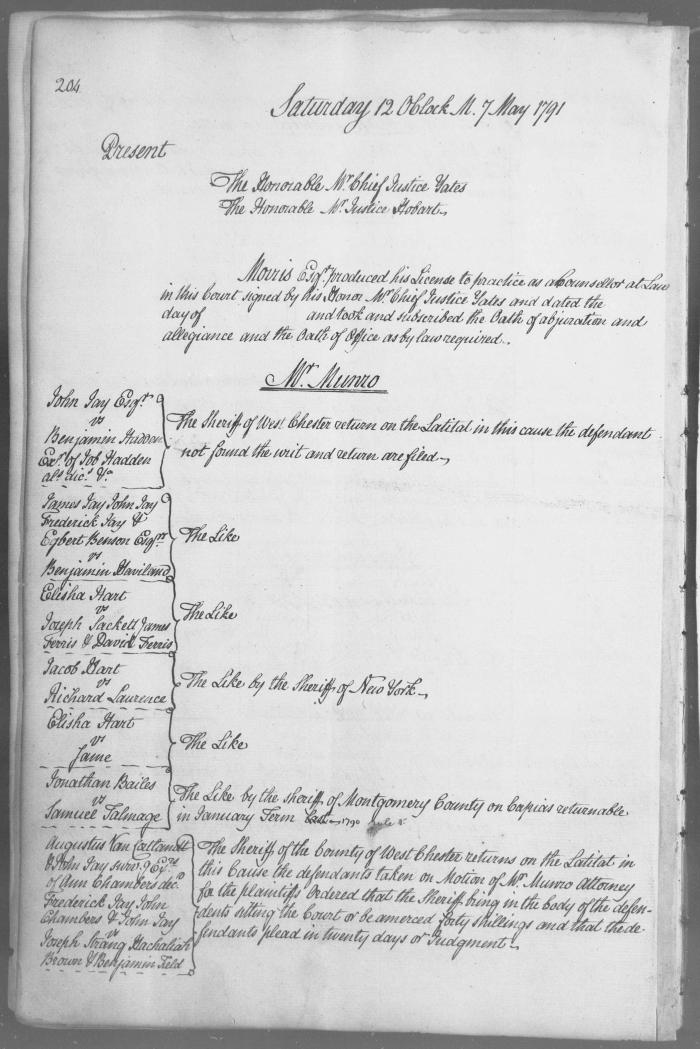 204
Saturday 12 OClock M. 7 May 1791
Present
The Honorable Mr. Chief Justice Yates
The Honorable Mr. Justice Hobart
Morris Esqr. produced his License to practice as a Counsellor at Law
in this Court signed by his Honor Mr. Chief Justice Yates and dated the
day of and took and subscribed the Oath of abjuration and
allegiance and the Oath of Office as by law required.
Mr. Munro
John Jay Esqr.
vs
Benjamin Hadden
Exr. of Job Hadden
als. dic. &c.
The Sheriff of West Chester return on the Latitat in this cause the defendant
not found the writ and return are filed
James Jay John Jay
Frederick Jay &
Egbert Benson Esqrs
vs
Benjamin Haviland
The Like
Elisha Hart
vs
Joseph Sackett James
Ferris & David Ferris
The Like
Jacob Hart
vs
Richard Laurence
The Like by the Sheriff of New York
Elisha Hart
vs
Same
The Like
Jonathan Bailes
vs
Samuel Talmage
The Like by the sheriff of Montgomery County on Capias returnable
in January Term last 1790
Augustus Van Cortlandt
& John Jay surv.g Exrs
of Ann Chambers decd.
Frederick Jay John
Chambers & John Jay
vs
Joseph Strang Hachaliah
Brown & Benjamin Field
The Sheriff of the County of West Chester returns on the Latitat in
this Cause the defendants taken on Motion of Mr. Munro Attorney
for the plaintiffs Ordered that the Sheriff bring in the body of the defen-
dents sitting the Court or be amerced forty shillings and that the de-
fendants plead in twenty days or Judgment